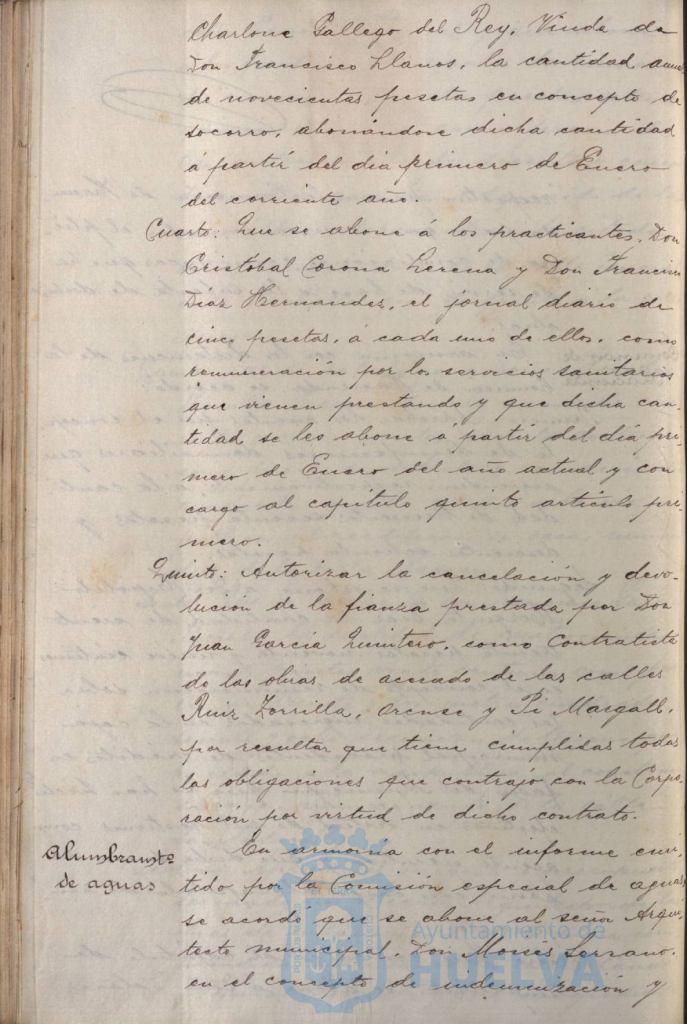 Charlone Gallego del Rey, Viuda de
Don Francisco Llanos, la cantidad anual
de novecientas pesetas en concepto de
socorro, abonándose dicha cantidad
á partir del dia primero de Enero
del corriente año.
Cuarto: Que se abone á los practicantes, Don
Cristóbal Corona Lerena y Don Francisco
Díaz Hernandez, el jornal diario de
cinco pesetas, á cada uno de ellos, como
remuneración por los servicios sanitarios
que vienen prestando y que dicha can-
tidad se les abone á partir del dia pri-
mero de Enero del año actual y con
cargo al capitulo quinto articulo pri-
mero.
Quinto: Autorizar la cancelación y devo-
lución de la fianza prestada por Don
Juan García Quintero, como contratista
de las obras de acerado de las calles
Ruiz Zorrilla, Orense y Pi Margall,
por resultar que tiene cumplidas todas
las obligaciones que contrajó con la Corpo-
ración por virtud de dicho contrato.
Alumbramto
de aguas
En armonia con el informe emi-
tido por la Comisión especial de aguas
se acordó que se abone al señor Arqui-
tecto municipal, Don Moisés Serrano,
en el concepto de indemnización y
Ayuntamiento de
HUELVA